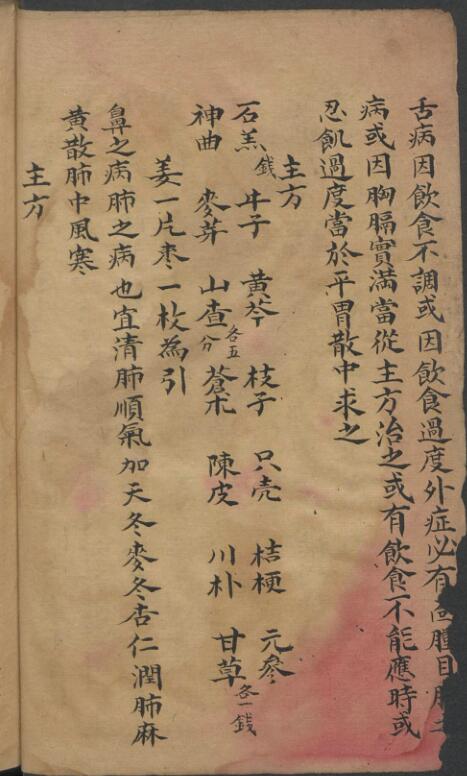 舌病因飲食不調或因飲食過度外症必有面腫目
病或因胸膈實滿當從主方治之或有飲食不能應時或
忍飢過度當於平胃散中求之
主方
石羔錢 牛子 黃芩 枝子 只壳 桔梗 元參
神曲 麥芽 山查各五分 蒼朮 陳皮 川朴 甘草各一錢
姜一片枣一枚為引
鼻之病肺之病也宜清肺順氣加天冬麥冬杏仁潤肺麻
黃散肺中風寒
主方